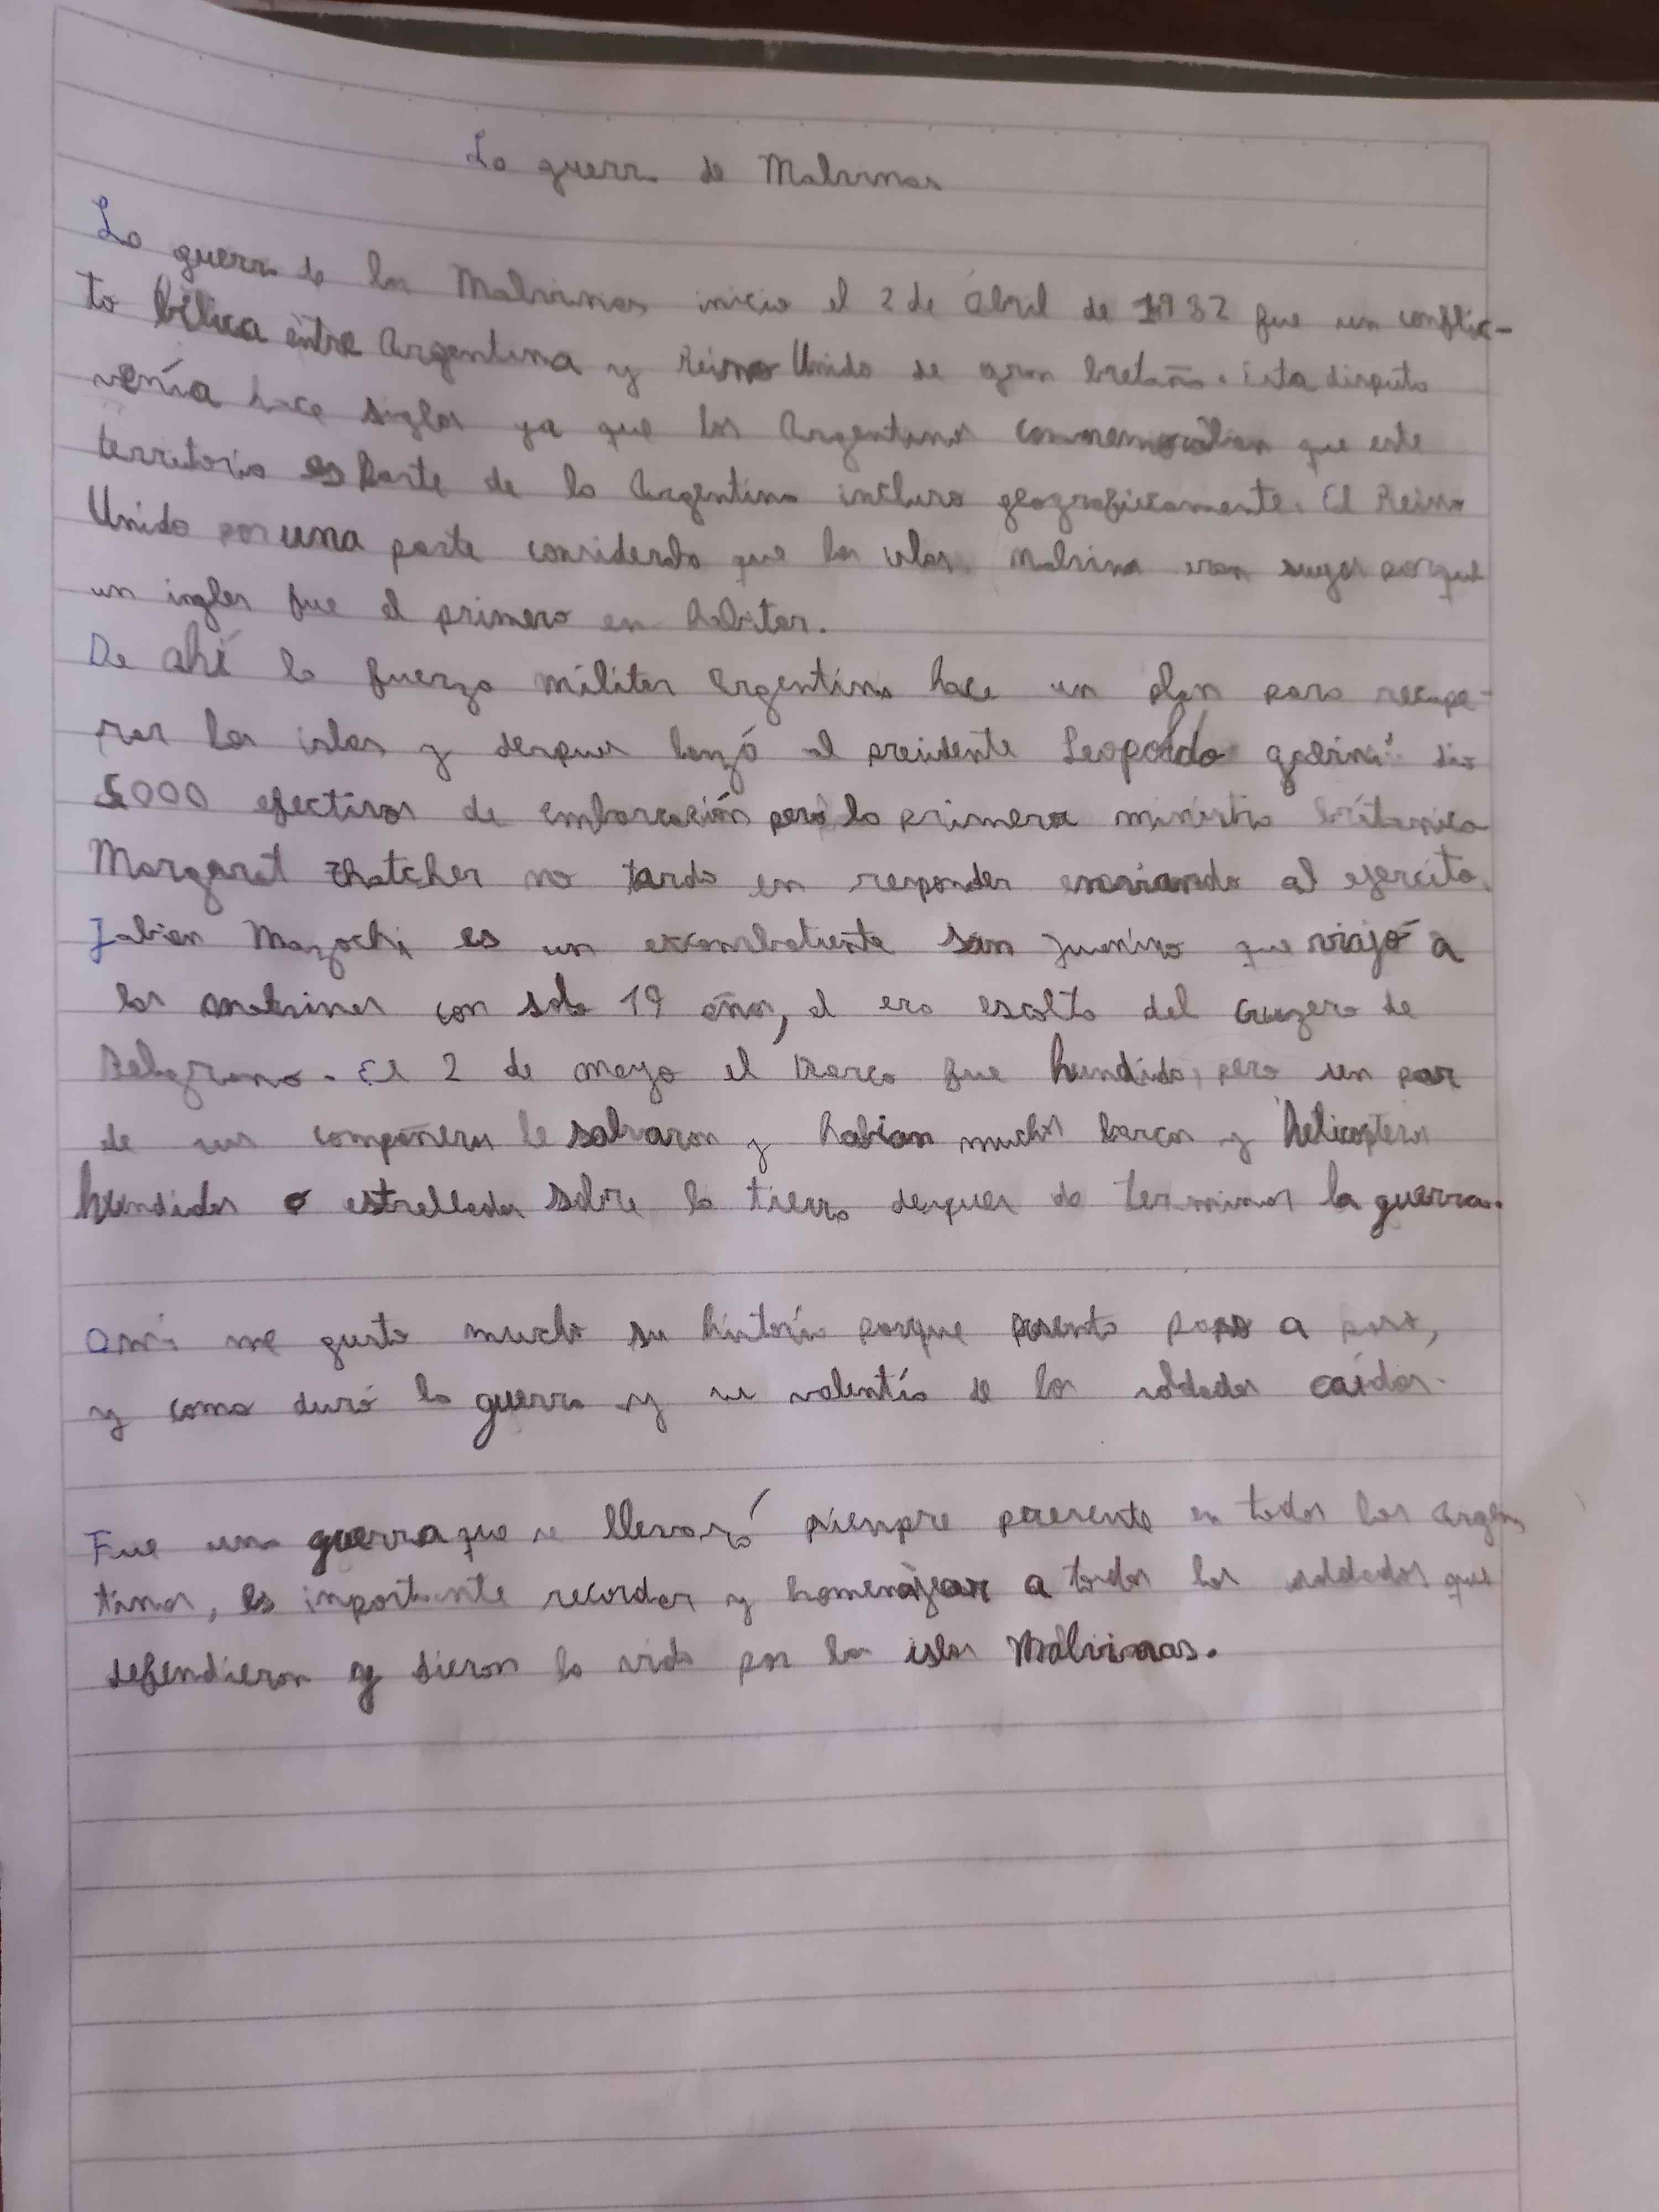 La guerra de Malvinas
La guerra de las Malvinas inicio el 2 de abril de 1982 fue un conflic-
to bélica entre Argentina y Reino Unido de gran bretaña. Esta disputa
venía hace siglos ya que los Argentinos que este
territorio es parte de la Argentina incluso geograficamente. El Reino
Unido por una parte considerado que las islas Malvina eran suyas porque
un ingles fue el primero en habitar.
De ahí la fuerza militar argentina hace un plan para recupe-
rar las islas y despues lanzó el presidente Leopoldo dio
5000 efectivos de embarcación pero la primera ministra británica
Margaret Thatcher no tardo en responder enviando al ejercito.
Fabian Mazochi es un excombatiente san juanino que viajó a
las malvinas con solo 19 años, el era escolta del cruzero de
Belgrano. El 2 de mayo el barco fue hundido, pero un par
de sus compañeros le salvaron y habian muchos barcos y helicopteros
hundidos o estrellados sobre la tierra despues de terminar la guerra.
Ami me gusto mucho su historia porque paso a paso,
y como duró la guerra y su valentía de los soldados caídos.
Fue una guerra que se llevará siempre presente en todos los argen
tinos, es importante recordar y homenajear a todos los soldados que
defendieron y dieron la vida por las islas Malvinas.